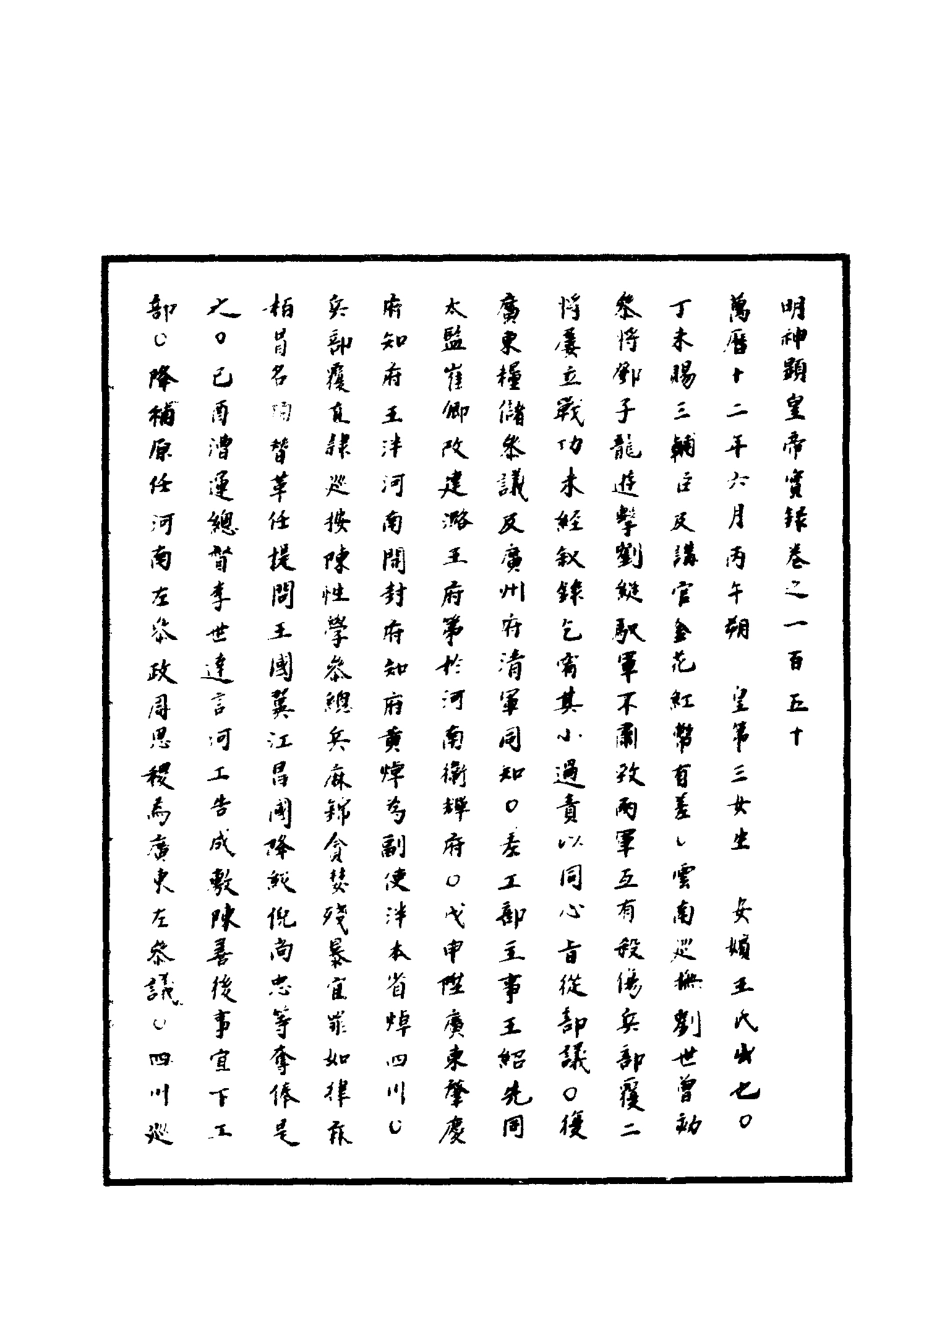 明神顯皇帝實錄卷之一百五十
萬曆十二年六月丙午朔　皇第三女生　安嬪王氏出也○
丁未賜三輔臣及講官金花紅幣有差○雲南巡撫劉世曾劾
參將鄧子龍遊擊劉綎馭軍不肅致兩軍互有殺傷兵部覆二
將屢立戰功未經敘錄乞宥其小過責以同心旨從部議○復
廣東糧儲參議及廣州府清軍同知○差工部主事王紹先同
太監崔卿改建潞王府第於河南衛輝府○戊申陞廣東肇慶
府知府王泮河南開封府知府黄焯為副使泮本省焯四川○
兵部覆直隸巡按陳性學參總兵麻錦貪婪殘暴宜罪如律蔴
栢冒名降替革任提問王國冀江昌國降級倪尚忠等奪俸是
之○己酉漕運總督李世達言河工告成敷陳善後事宜下工
部○降補原任河南左參政周思稷為廣東左參議○四川巡